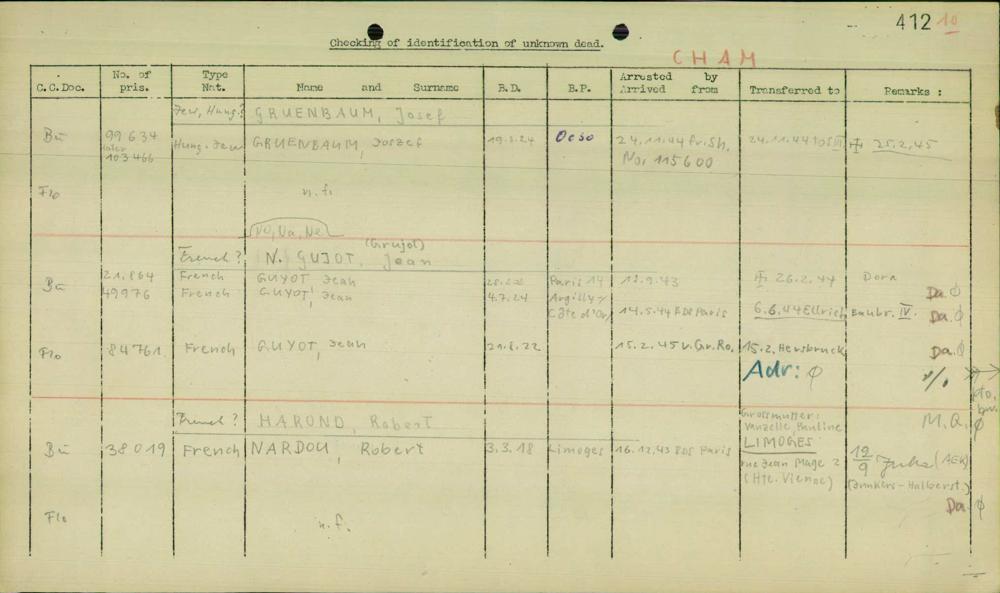 412 10
Checking of identification of unknown dead.
CHAM
C.C.Doc. No. of pris. Type Nat. Name and Surname B.D. B.P. Arrested by Arrived from Transferred to Remarks :
Jew, Hung.? GRUENBAUM, Josef
Bu 99634 Hung. Jew GRUENBAUM, Joszef 19.3.24 24.11.44 fr. Sh. 24.11.44 25.2.45
103466 No. 115600
Flo n.f.
No, Na, Ne
(Grujot)
French? N. GUJOT, Jean
Bu 21.864 French GUYOT Jean Paris 14 26.2.44 Dora
49976 French GUYOT, Jean 4.7.24 Argilly Da. ϕ
Côte d'Or 14.5.44 BDS Paris 6.6.44 Ellrich Baubr. IV. Da. ϕ
Flo 84761 French GUYOT, Jean 21.8.22 15.2.45 v. Gr. Ro. 15.2. Hersbruck Da. ϕ
Adr: ϕ
French? HAROND, Robert Grossmutter: M.Q. ϕ
Vanzelle, Pauline
Bu 38019 French NARDOU, Robert 3.3.18 Limoges 16.12.43 BDS Paris LIMOGES 12/9 (AEK)
rue Jean Mage 2
(Hte. Vienne) (Junkers-Halberst.)
Da. ϕ
Flo n.f.